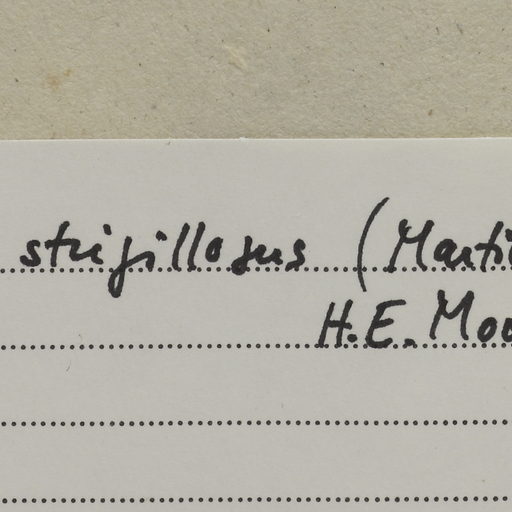 strigillosus (Marti
H.E. Moo